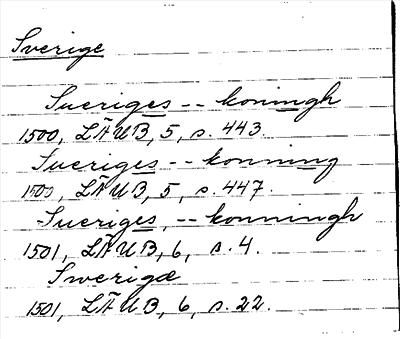 Sverige
Sueriges -- koningh
1500, LÄUB, 5, s. 443.
Sueriges -- konning
1500, LÄUB, 5, s. 447.
Sueriges, -- konningh
1501, LÄUB, 6, s. 4.
Swerigæ
1501, LÄUB, 6, s. 22.